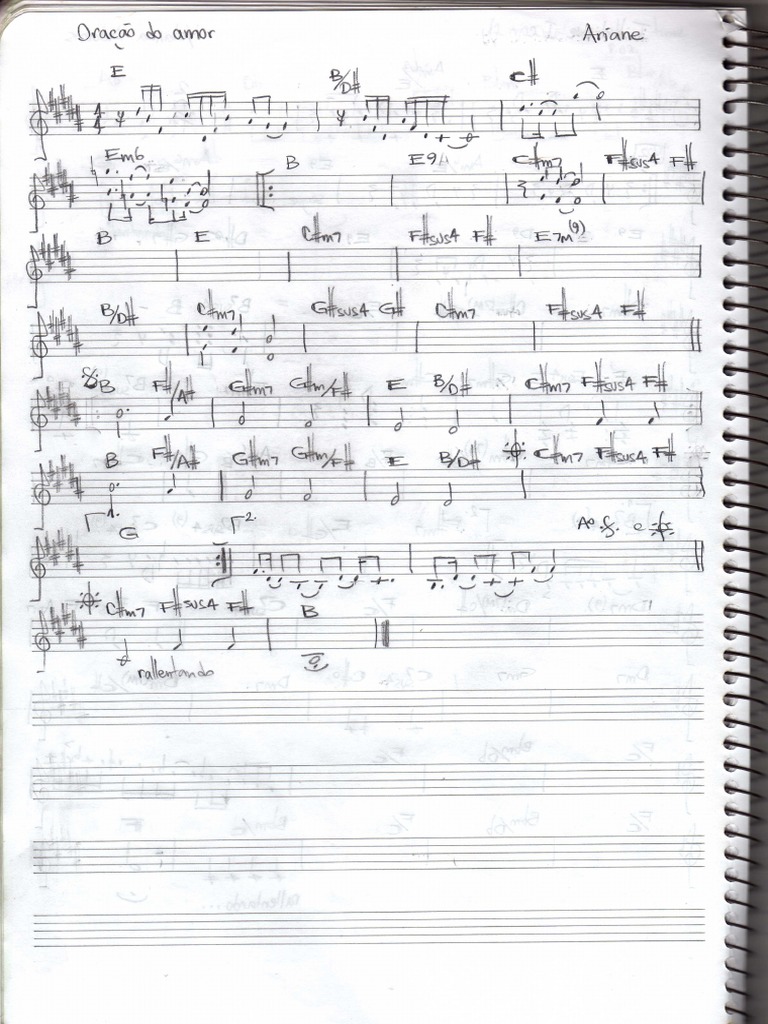 Oração do amor Ariane
E B/D# C#
Em6 B E9 C#m7 F#sus4 F#
B E C#m7 F#sus4 F# E7M(9)
B/D# C#m7 G#sus4 G# C#m7 F#sus4 F#
B F#/A# G#m7 G#m/F# E B/D# C#m7 F#sus4 F#
B F#/A# G#m7 G#m/F# E B/D# C#m7 F#sus4 F#
1. G 2. Ao 𝄋 e 𝄌
C#m7 F#sus4 F# B
rallentando